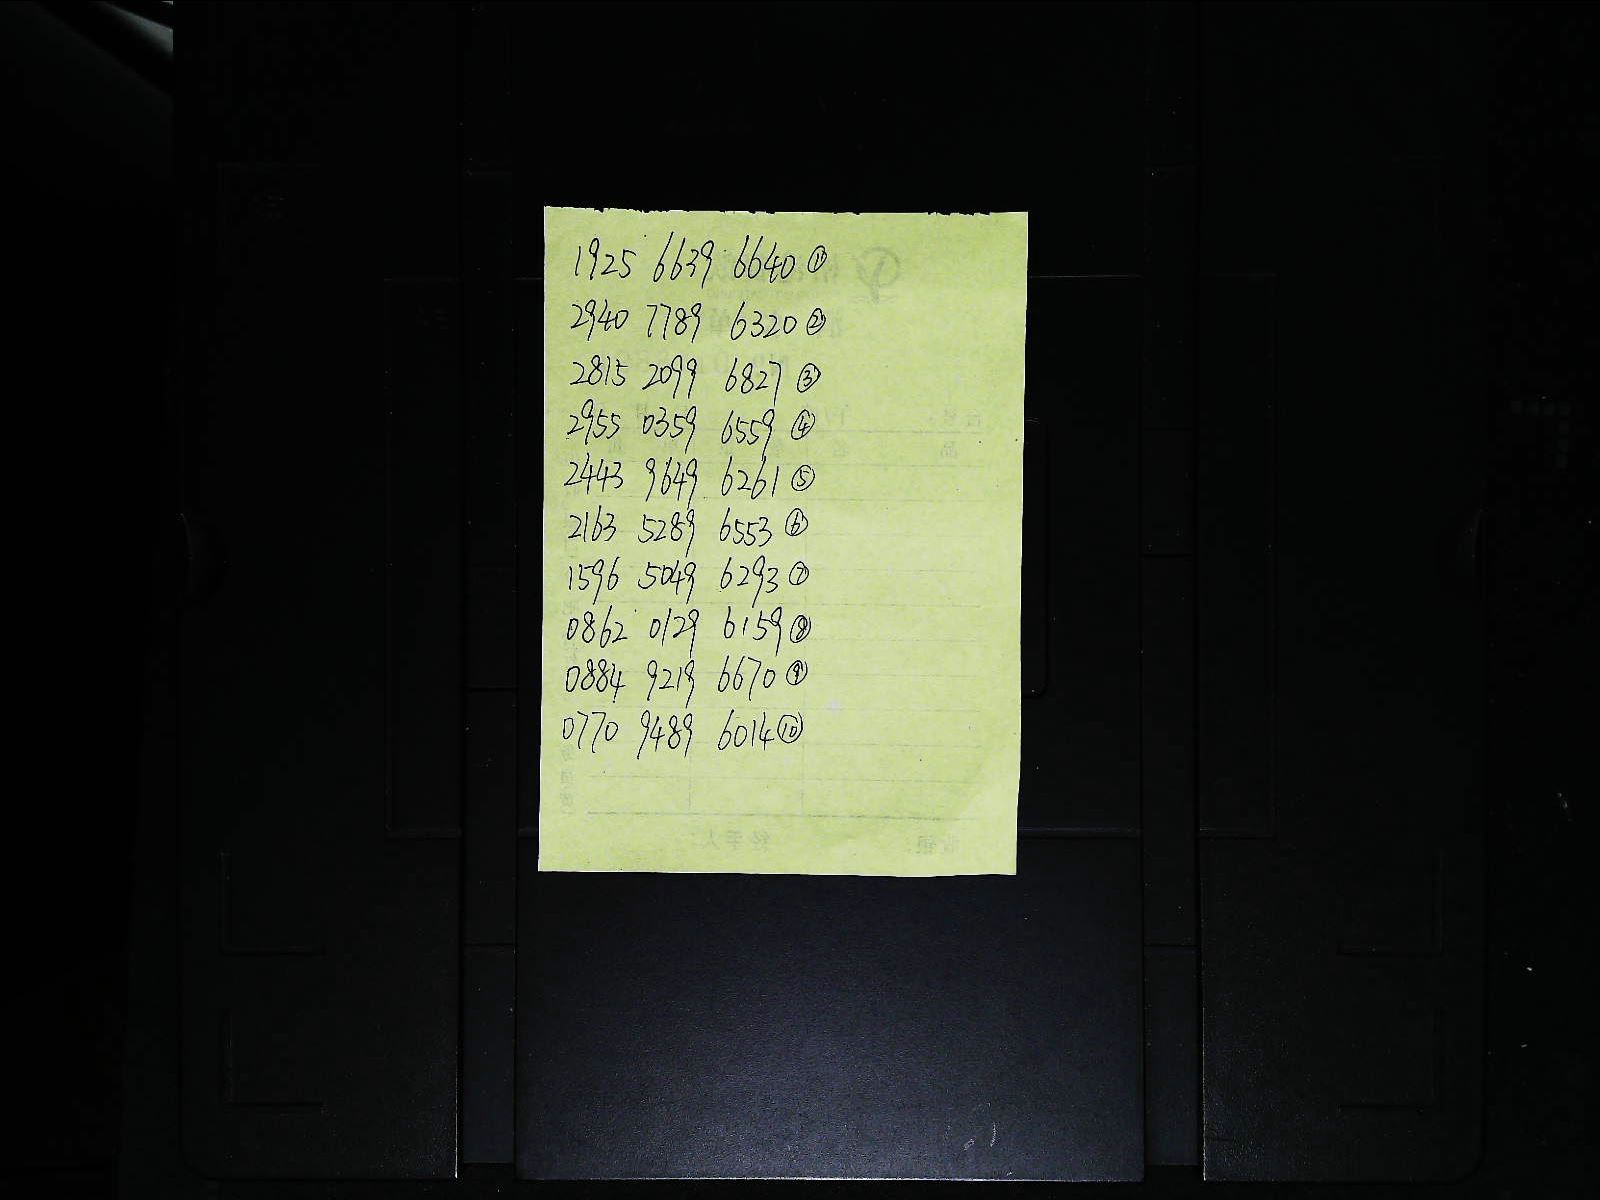 1925 6639 6640 ①
2940 7789 6320 ②
2815 2099 6827 ③
2955 0359 6559 ④
2443 9649 6261 ⑤
2163 5289 6553 ⑥
1596 5049 6293 ⑦
0862 0129 6159 ⑧
0884 9219 6670 ⑨
0770 9489 6014 ⑩